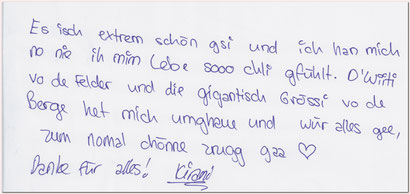 Es isch extrem schön gsi und ich han mich
no nie ih mim Lebe sooo chli gfühlt. D'Wiiti
vo de Felder und die gigantisch Grössi vo de
Berge het mich umghaue und wür alles gee,
zum nomal chönne zrugg gaa ♡
Danke für alles!